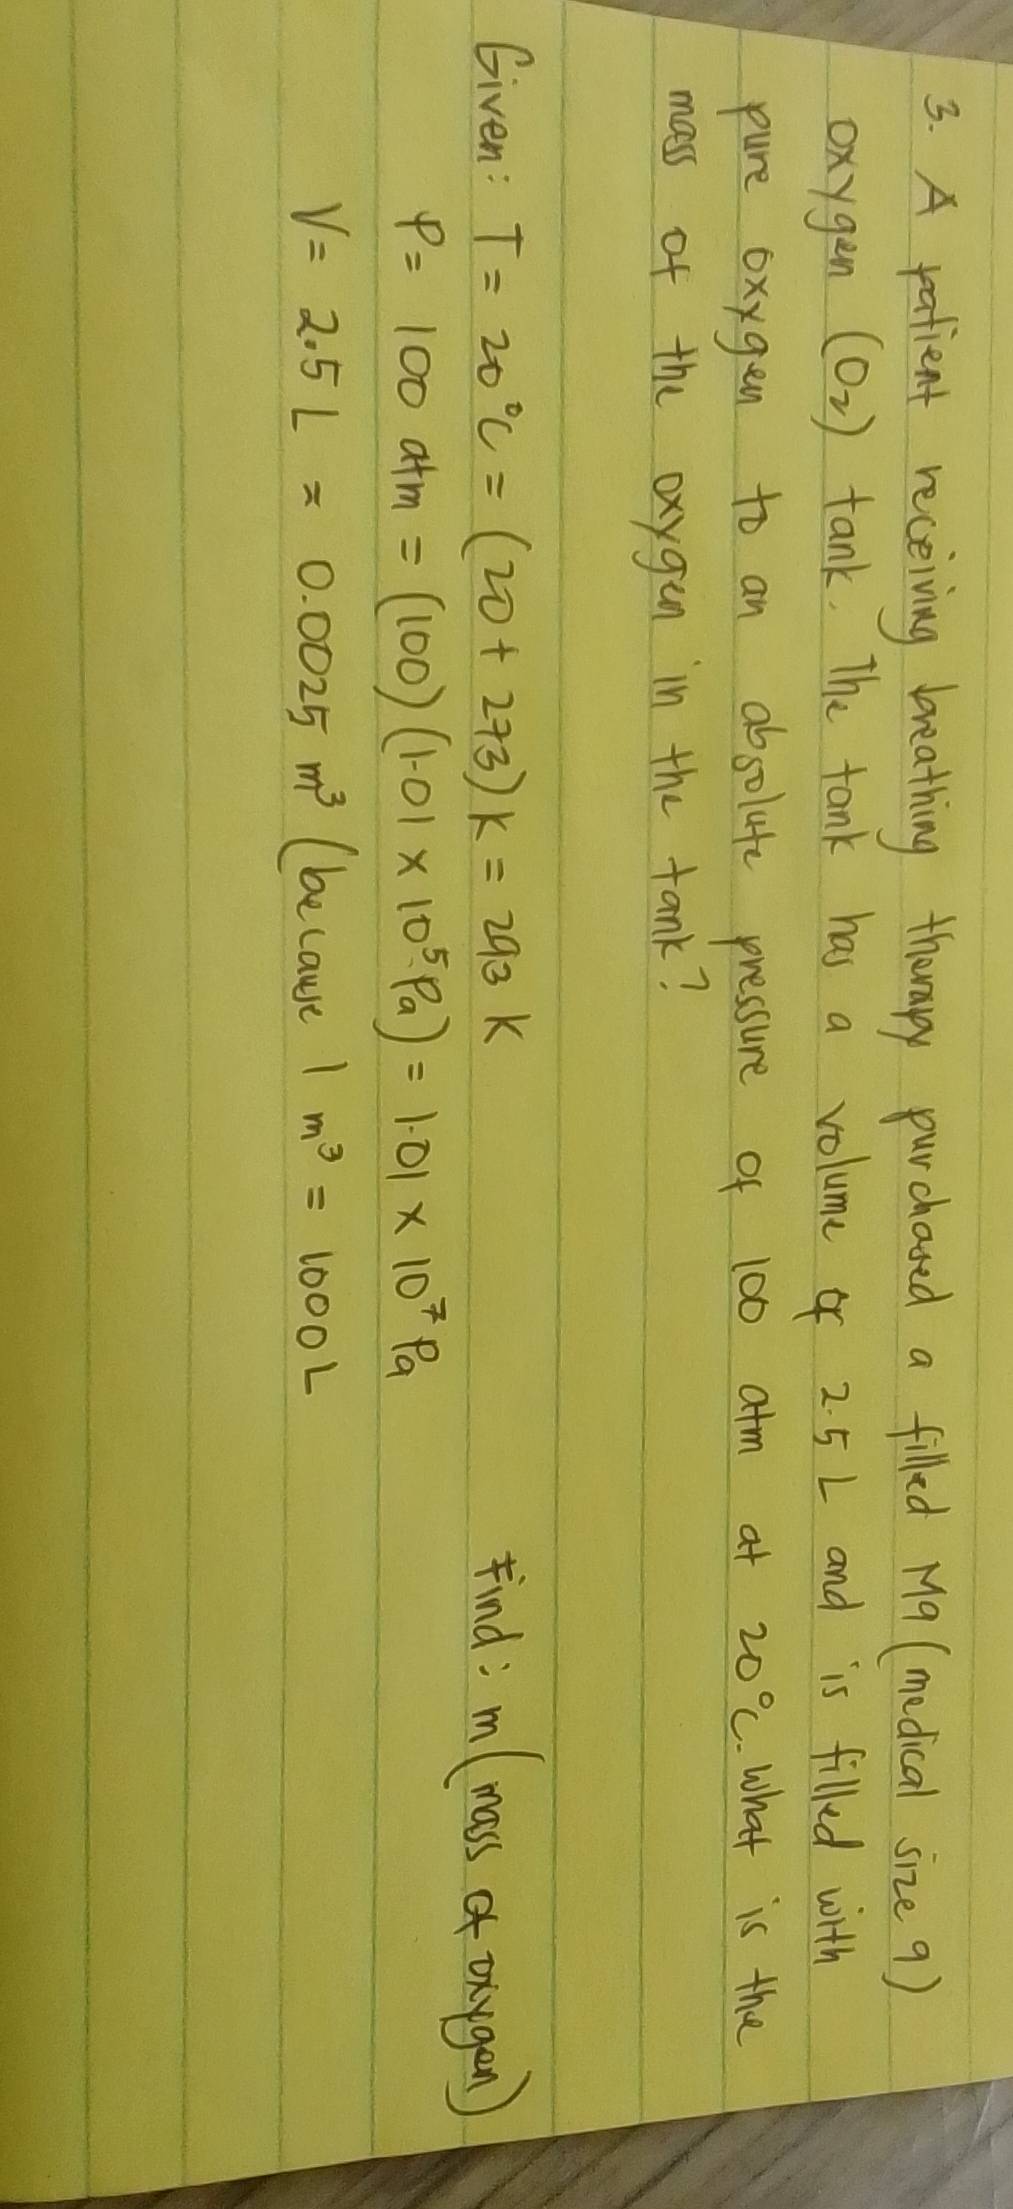 3. A patient receiving breathing therapy purchased a filled M9 (medical size 9)
oxygen (O₂) tank. The tank has a volume of 2.5 L and is filled with
pure oxygen to an absolute pressure of 100 atm at 20°C. What is the
mass of the oxygen in the tank?
Given: T = 20°C = (20 + 273) K = 293 K Find: m (mass of oxygen)
P = 100 atm = (100) (1.01 × 10⁵ Pa) = 1.01 × 10⁷ Pa
V = 2.5 L = 0.0025 m³ (because 1 m³ = 1000 L